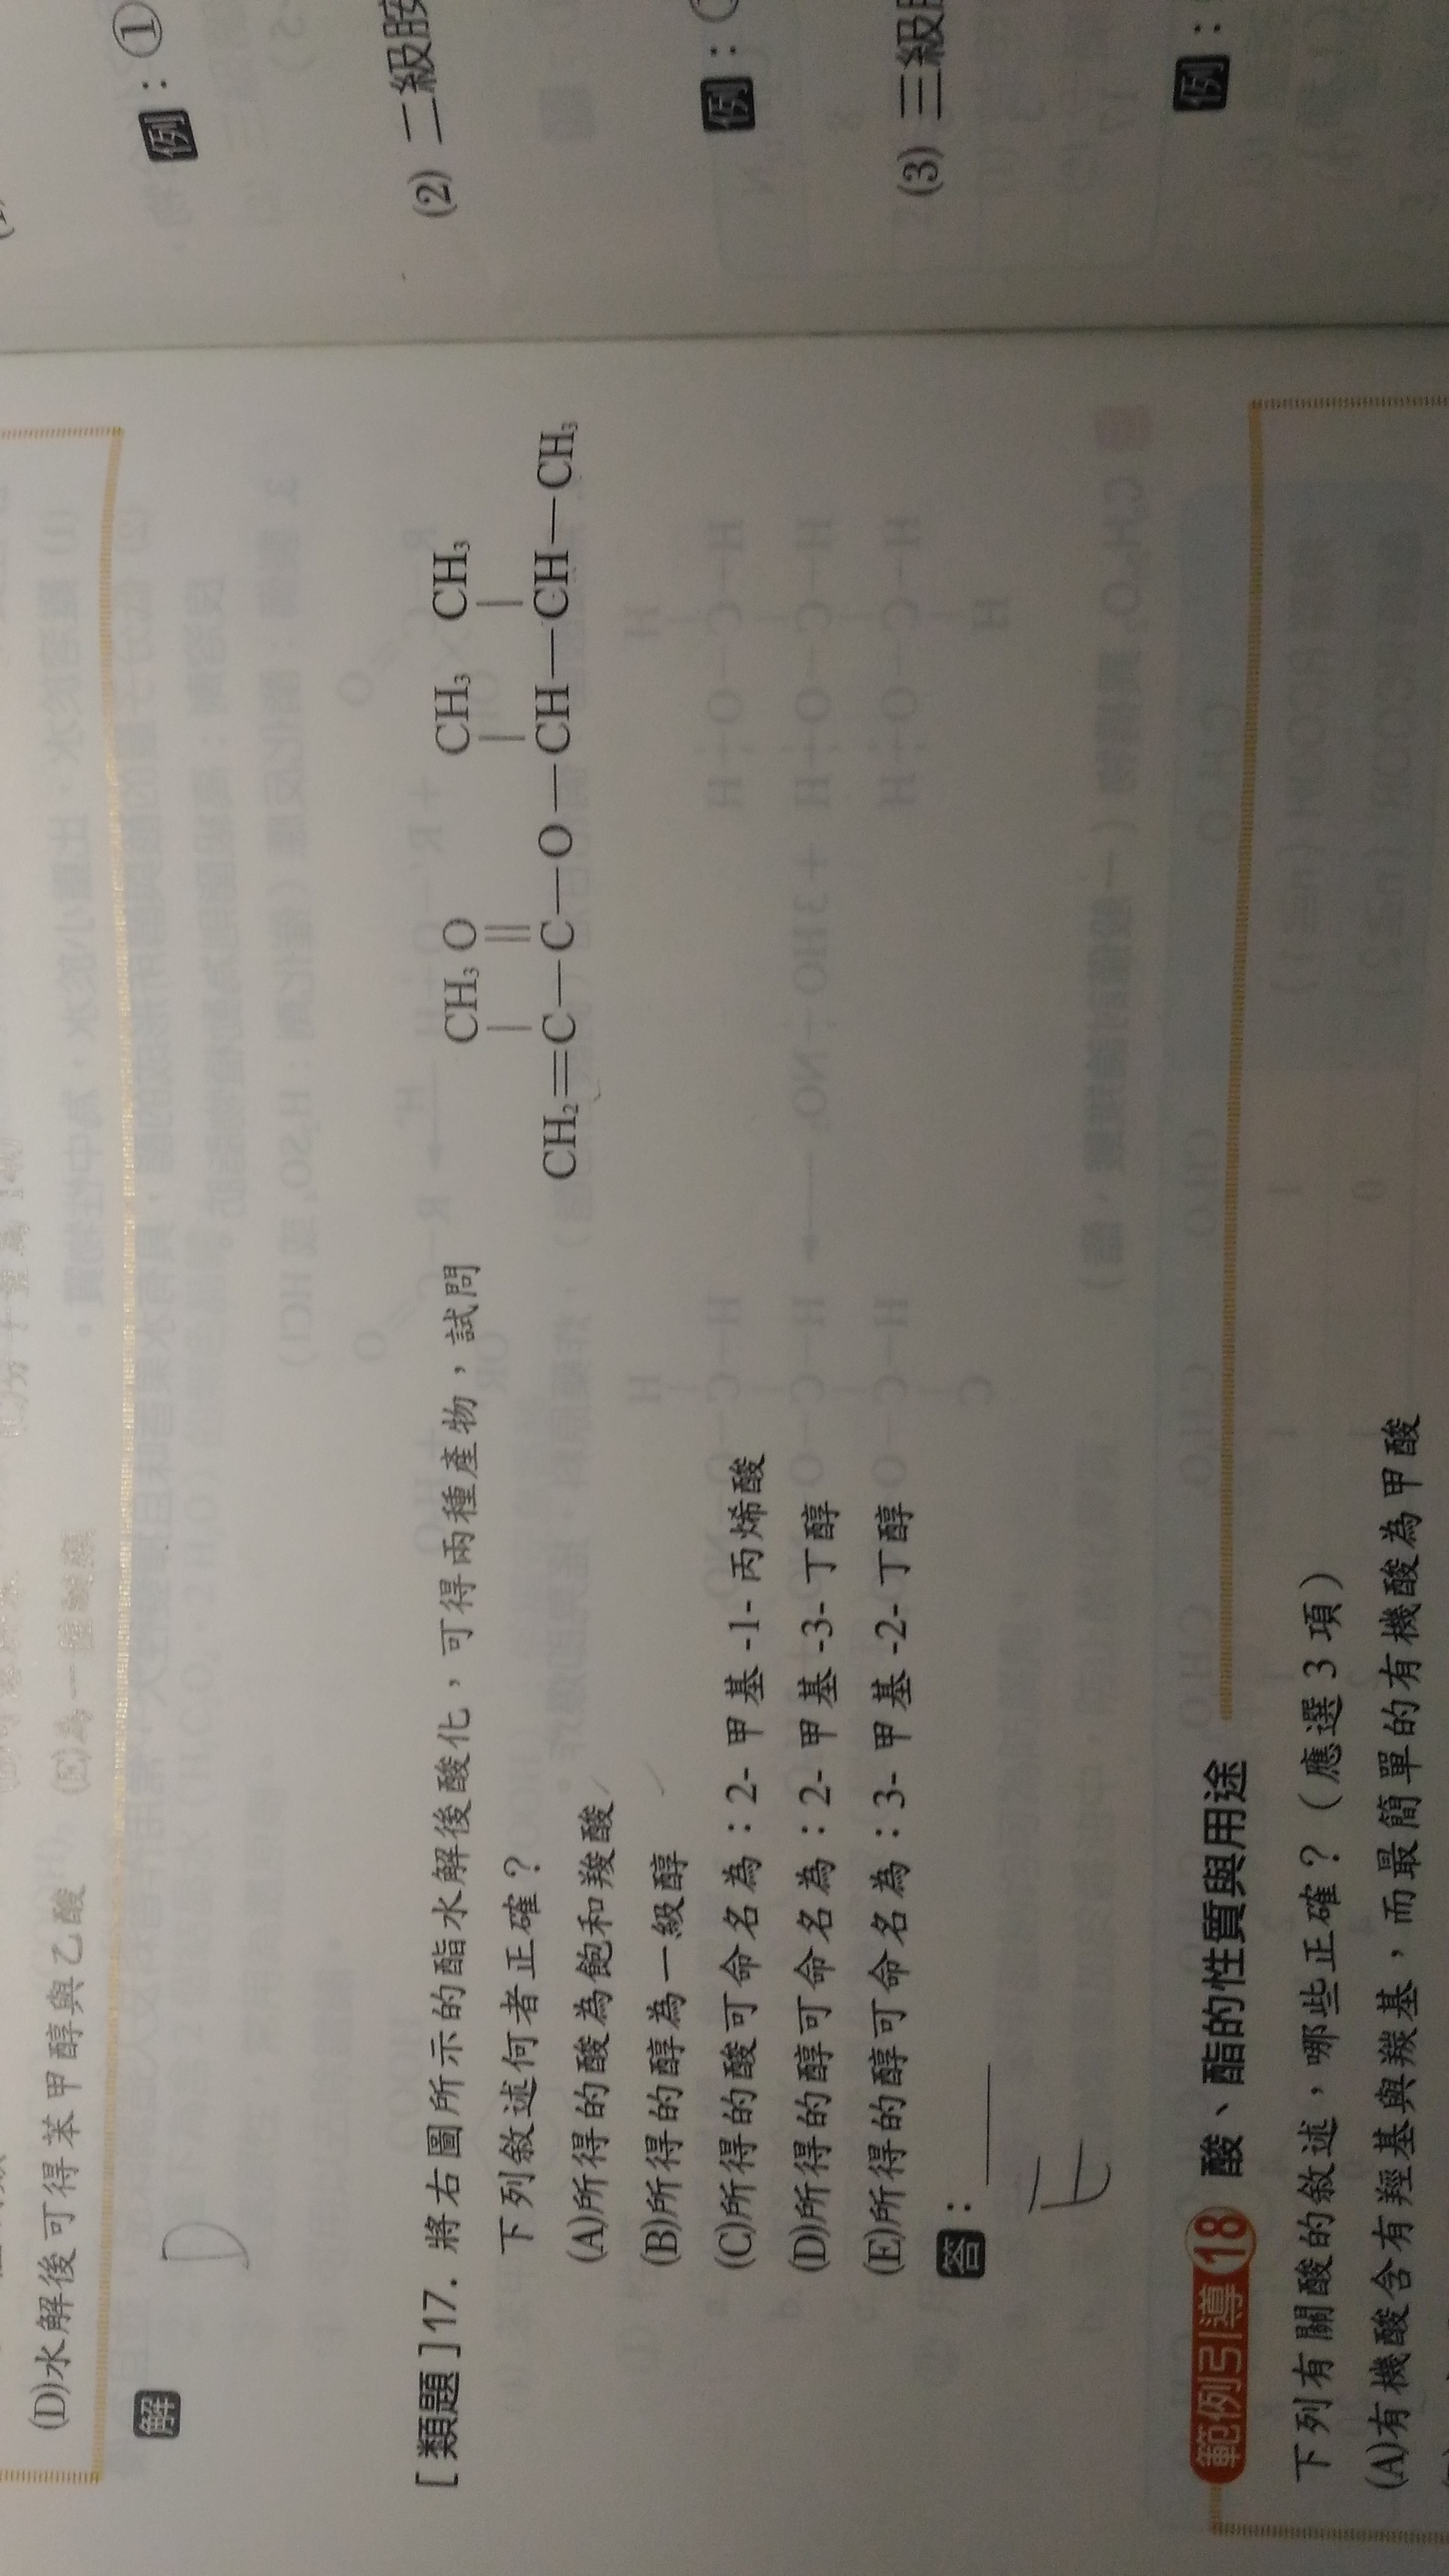 (D)水解後可得苯甲醇與乙酸 (E)為一種鹹與
解
D
[類題]17. 將右圖所示的酯水解後酸化，可得兩種產物，試問
下列敘述何者正確？
CH₃ O CH₃ CH₃
CH₂=C—C—O—CH—CH—CH₃
(A)所得的酸為飽和羧酸
(B)所得的醇為一級醇
(C)所得的酸可命名為：2- 甲基 -1- 丙烯酸
(D)所得的醇可命名為：2- 甲基 -3- 丁醇
(E)所得的醇可命名為：3- 甲基 -2- 丁醇
答：
E
範例引導 18 酸、酯的性質與用途
下列有關酸的敘述，哪些正確？（應選 3 項）
(A)有機酸含有羥基與羰基，而最簡單的有機酸為甲酸
例：①
(2) 二級胺
例：
(3) 三級
例：